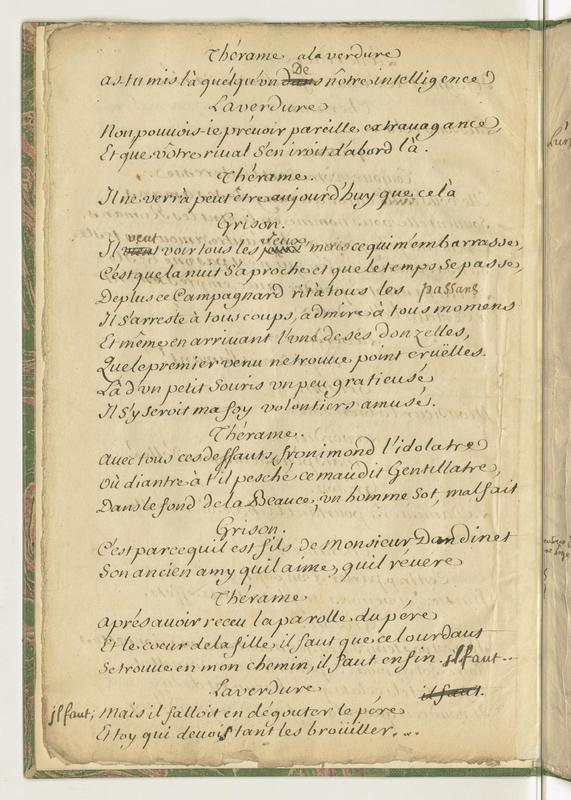 Thérame a la verdure
as-tu mis là quélqu'un De dans nôtre intelligence
La verdure
Non pouvois-ie préuoir pareille extrauagance,
Et que vôtre riual s'en iroit d'abord là.
Thérame.
Il ne verrà peut être aujourd'huy que cela
Grison.
Il veut voir tous les jeux mais ce qui m'embarrasse,
C'est que la nuit s'aproche et que le temps se passe,
De plus ce Campagnard rit à tous les passans
Il s'arreste à tous coups, admire à tous momens
Et même en arriuant l'une de ses donzelles,
Que le premier venu ne trouue point cruëlles.
Là d'un petit souris un peu gratieusé
Il s'y seroit ma foy volontiers amusé.
Thérame.
Auec tous ces deffauts, fronimond l'idolatre
Où diantre à t'il pesché ce maudit Gentillatre,
Dans le fond de la Beauce, un homme sot, mal fait
Grison.
C'est parce qu'il est fils de Monsieur Dandinet
Son ancien amy qu'il aime, qu'il révere
Thérame
Aprés auoir receu la parolle du pére
Et le cœur de la fille, il faut que ce lourdaut
Se trouue en mon chemin, il faut enfin. jl faut...
La verdure
il faut.
jl faut; Mais il falloit en dégouter le pére
Et toy qui deuois tant les broüiller...